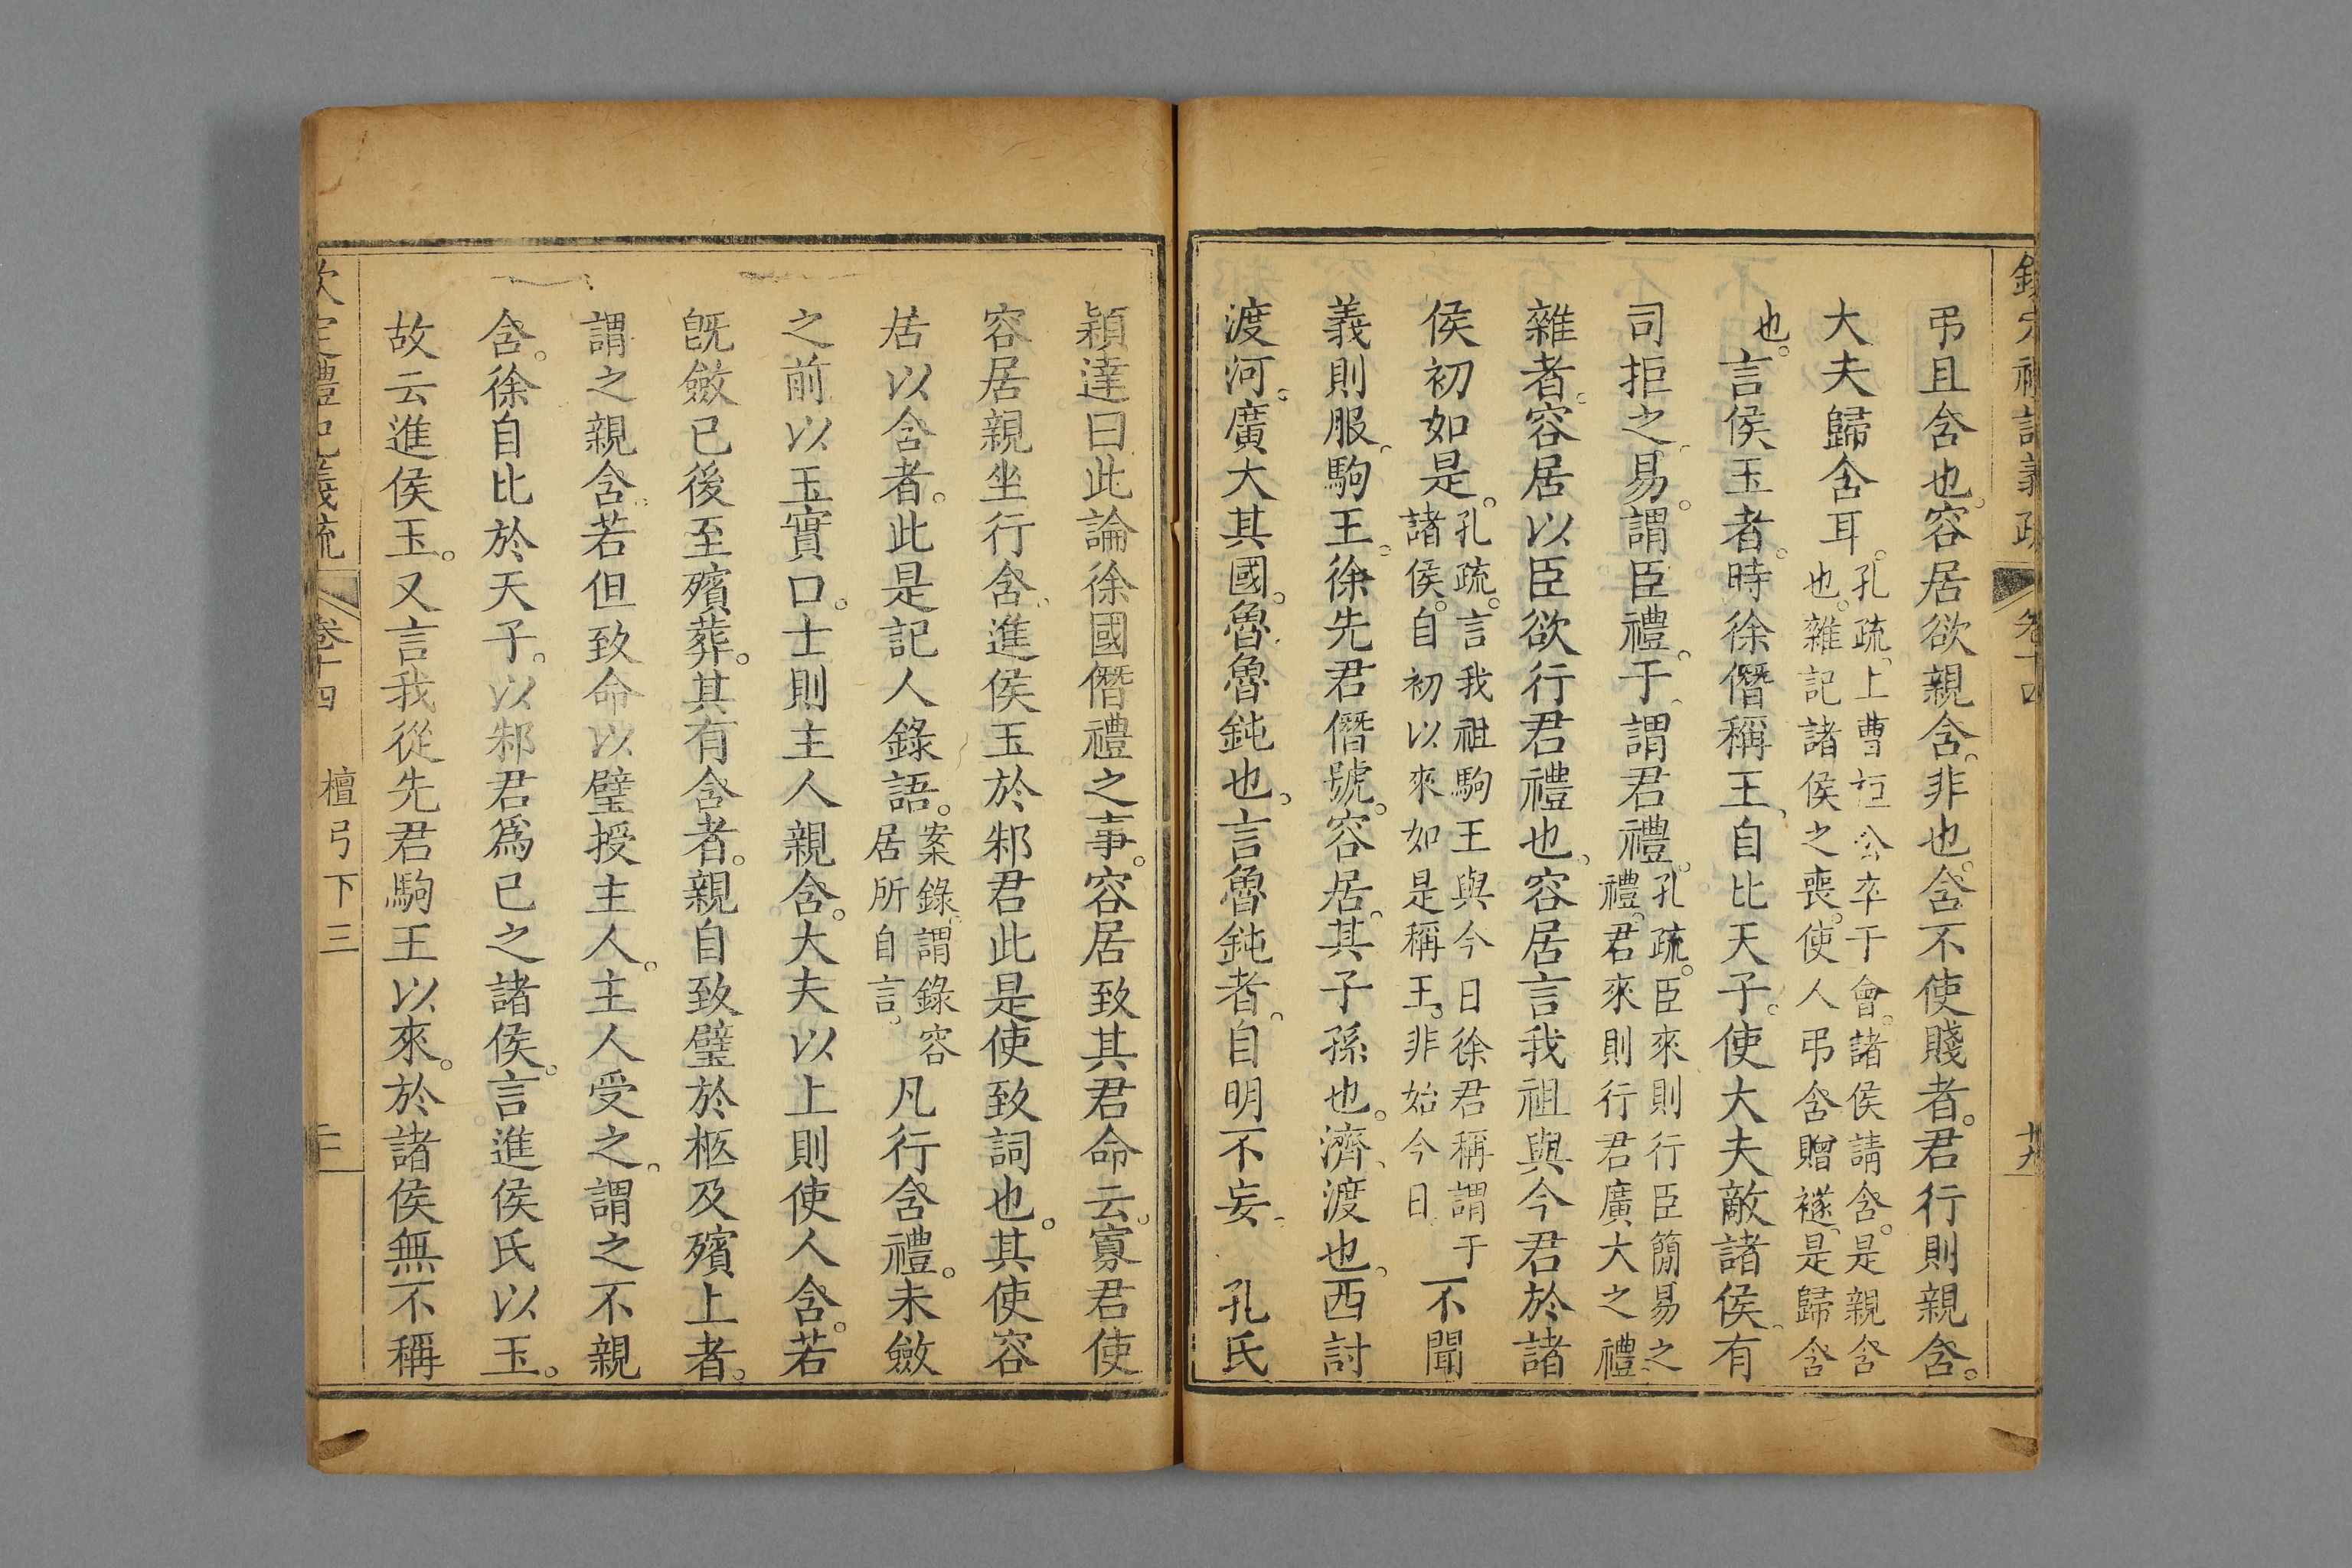 弔且含也容居欲親含非也含不使賤者君行則親含
大夫歸含耳
孔疏上曹桓公卒于會諸侯請含是親含
也雜記諸侯之喪使人弔含贈襚是歸含
也
言侯玉者時徐僭稱王自比天子使大夫敵諸侯有
司拒之易謂臣禮于謂君禮
孔疏臣來則行臣簡易之
禮君來則行君廣大之禮
雜者容居以臣欲行君禮也容居言我祖與今君於諸
侯初如是
孔疏言我祖駒王與今日徐君稱謂于
諸侯自初以來如是稱王非始今日
不聞
義則服駒王徐先君僭號容居其子孫也濟渡也西討
渡河廣大其國魯魯鈍也言魯鈍者自明不妄 孔氏
穎達曰此論徐國僭禮之事容居致其君命云寡君使
容居親坐行含進侯玉於邾君此是使致詞也其使容
居以含者此是記人錄語
案錄謂錄容
居所自言
凡行含禮未斂
之前以玉實口士則主人親含大夫以上則使人含若
旣斂已後至殯葬其有含者親自致璧於柩及殯上者
謂之親含若但致命以璧授主人主人受之謂之不親
含徐自比於天子以邾君爲已之諸侯言進侯氏以玉
故云進侯玉又言我從先君駒王以來於諸侯無不稱
欽定禮記義疏 卷十四 檀弓下三